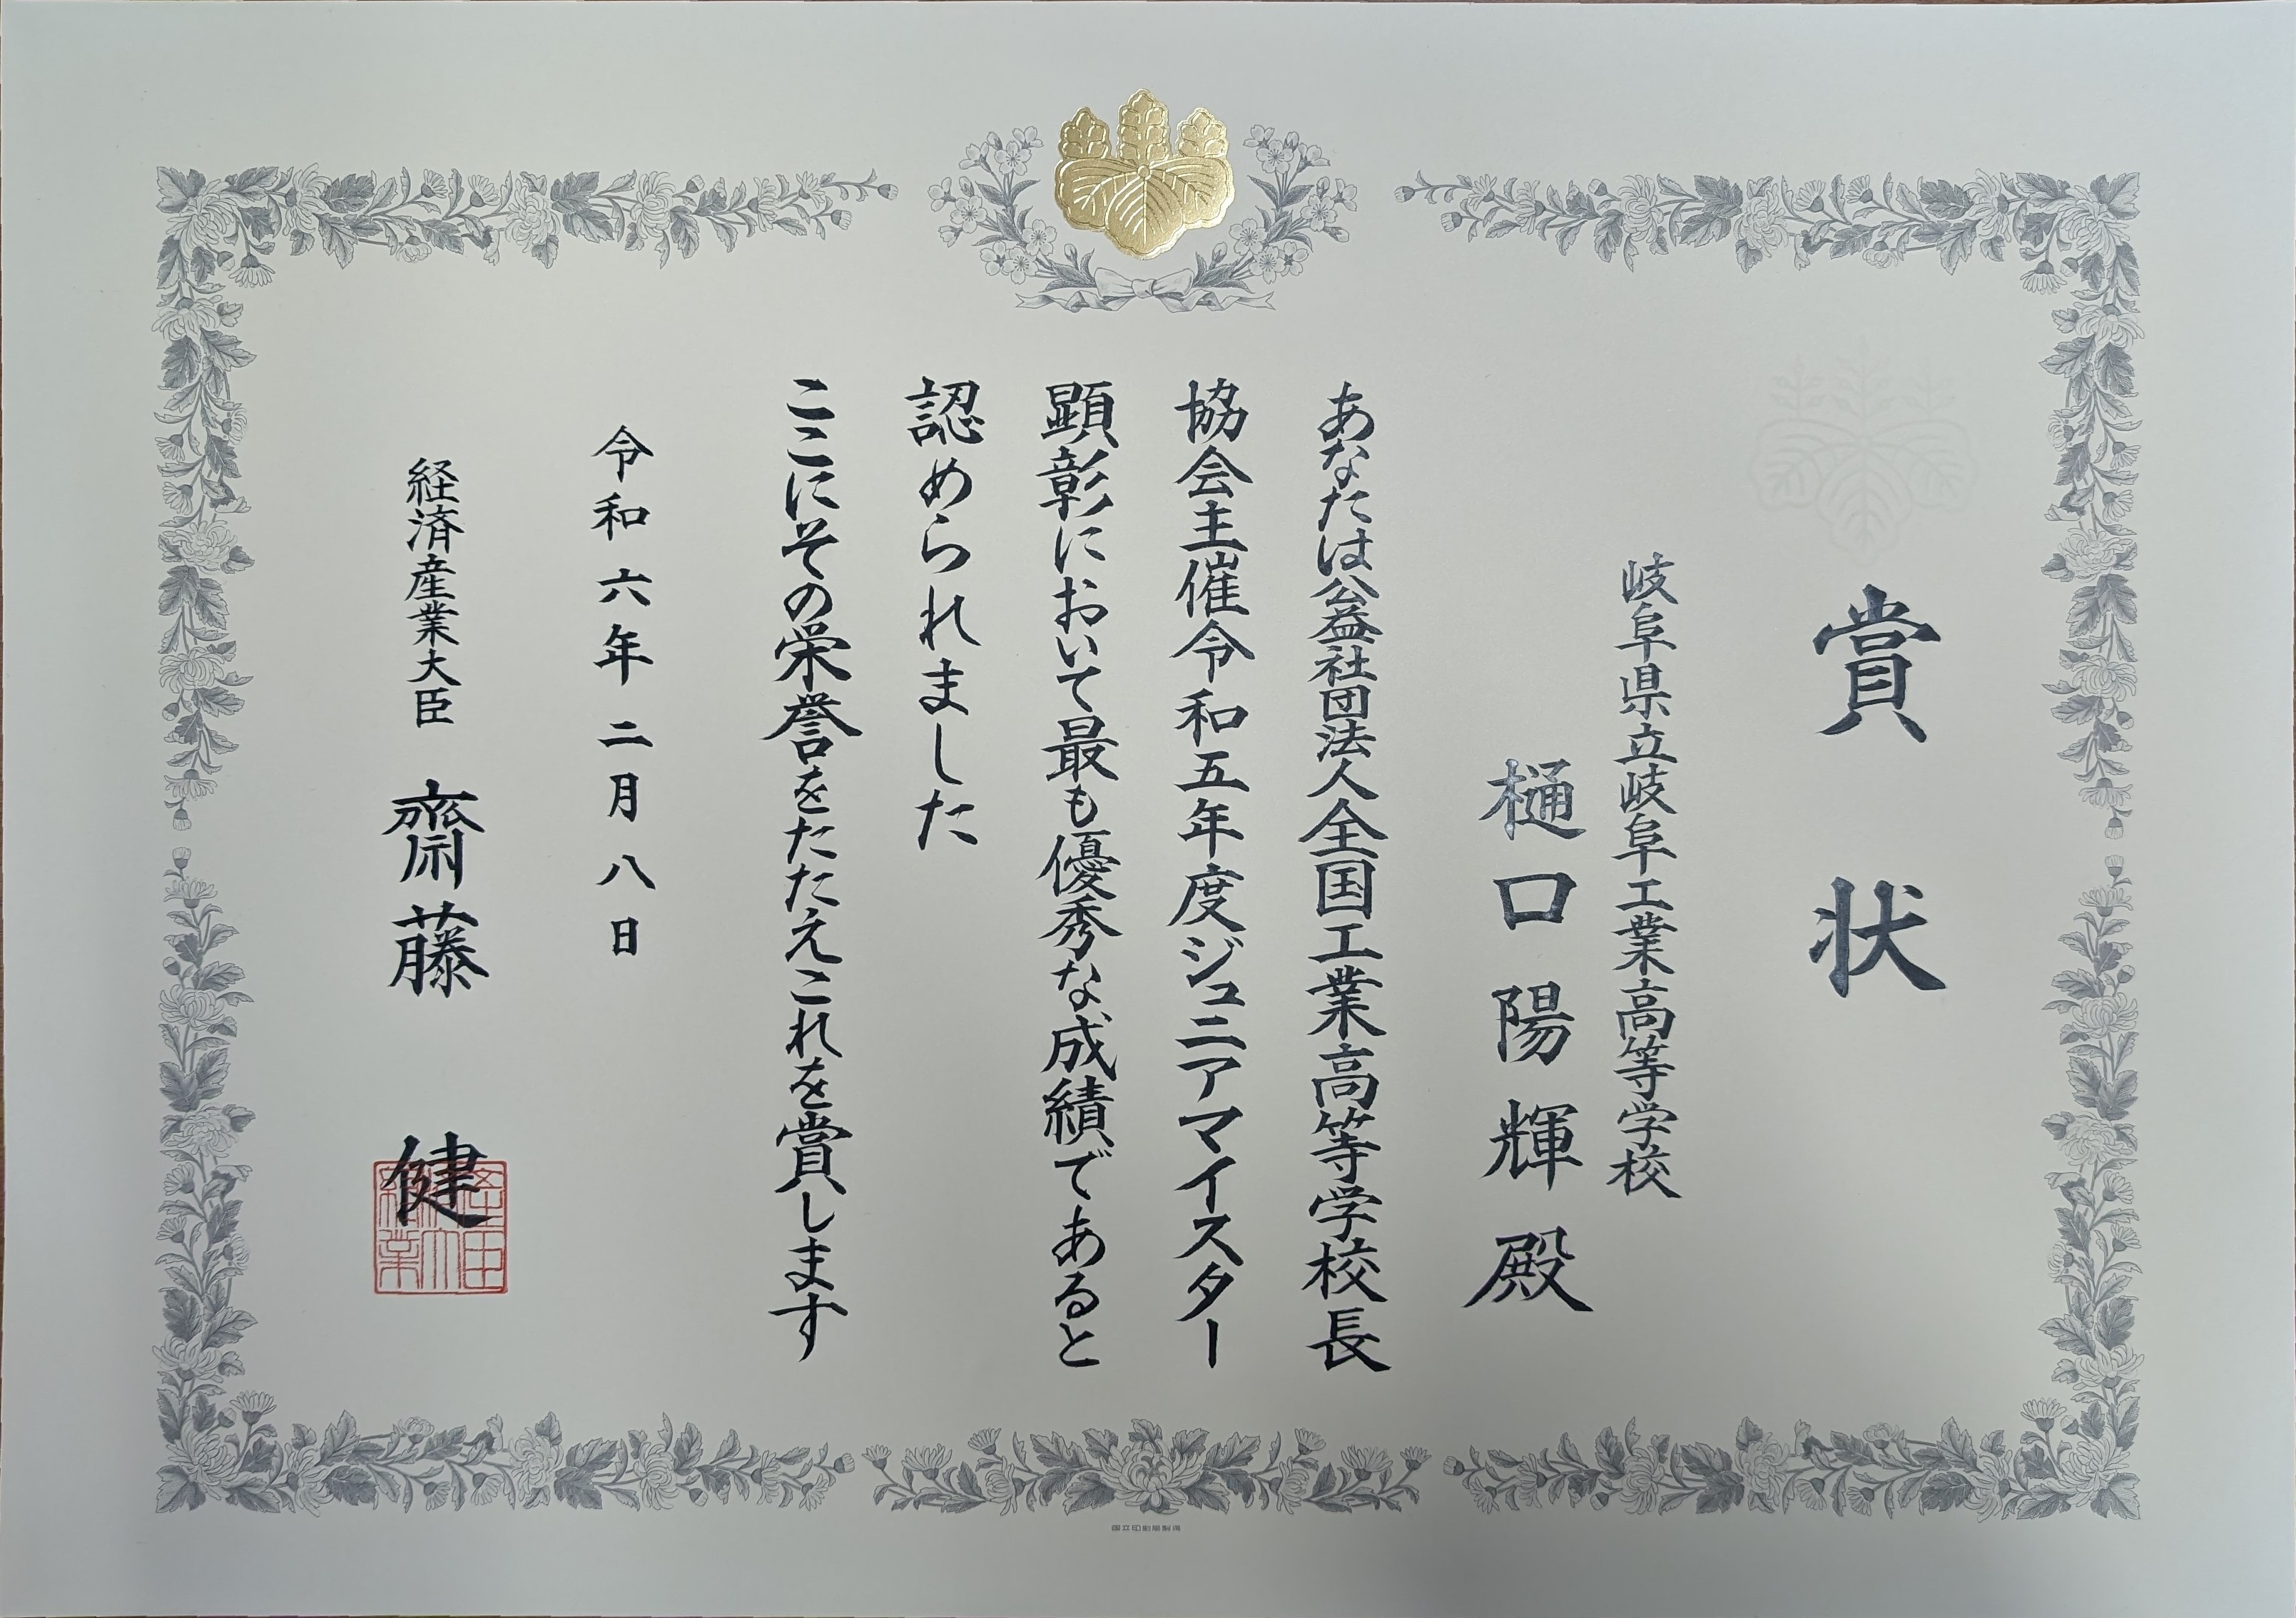 賞状
岐阜県立岐阜工業高等学校
樋口陽輝殿
あなたは公益社団法人全国工業高等学校長
協会主催令和五年度ジュニアマイスター
顕彰において最も優秀な成績であると
認められました
ここにその栄誉をたたえこれを賞します
令和六年二月八日
経済産業大臣 齋藤 健
国立印刷局製造